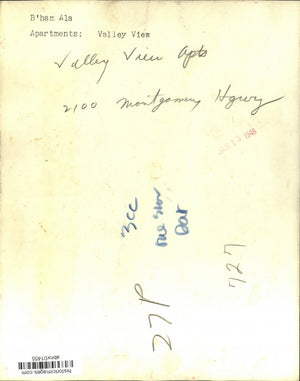 B'ham Ala
Apartments: Valley View
Valley View Apts
2100 Montgomery Hgwy
JAN 13 1948
3cc
one star
Dat
727
27P
historicimages.com
abnx01455